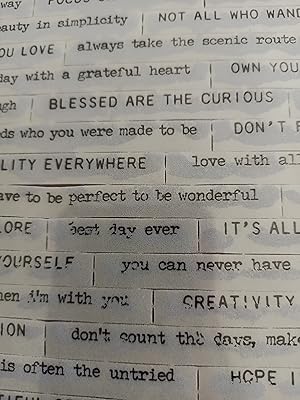 way | FOCUS
eauty in simplicity | NOT ALL WHO WAND
OU LOVE | always take the scenic route
day with a grateful heart | OWN YOU
gh | BLESSED ARE THE CURIOUS
ds who you were made to be | DON'T
LITY EVERYWHERE | love with all
ave to be perfect to be wonderful
LORE | best day ever | IT'S ALL
YOURSELF | you can never have
hen i'm with you | CREATIVITY
ION | don't count the days, mak
is often the untried | HOPE I